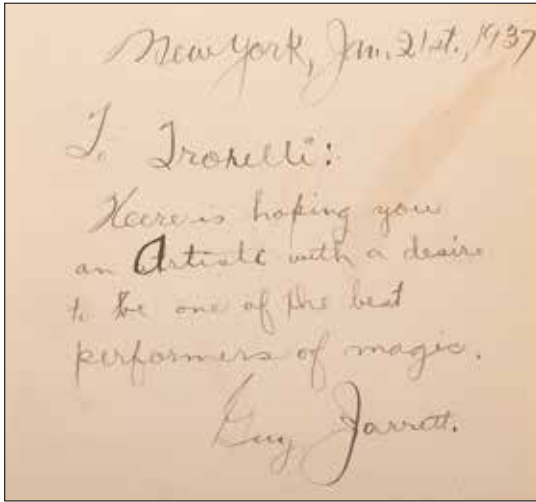 New York, Jan. 21st., 1937
To Troxelli:
Heere is hoping you
an Artistic with a desire
to be one of the best
performers of magic.
Guy Jarrett.